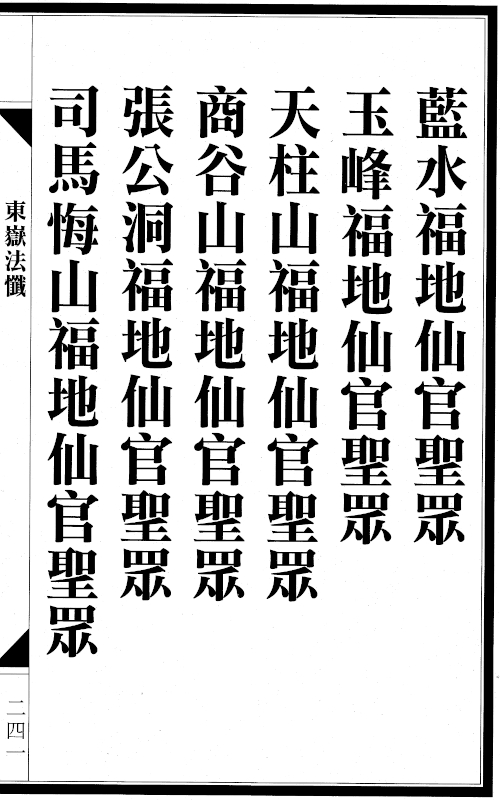 藍水福地仙官聖眾
玉峰福地仙官聖眾
天柱山福地仙官聖眾
商谷山福地仙官聖眾
張公洞福地仙官聖眾
司馬悔山福地仙官聖眾
東嶽法懺
二四一